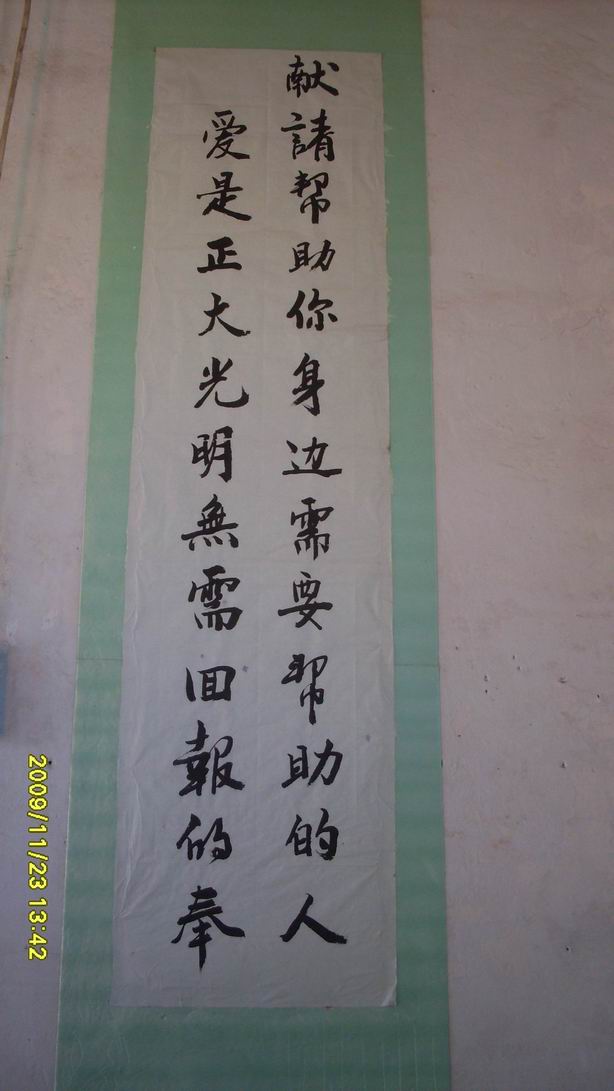 爱是正大光明無需回報的奉
献請帮助你身边需要帮助的人
2009/11/23 13:42